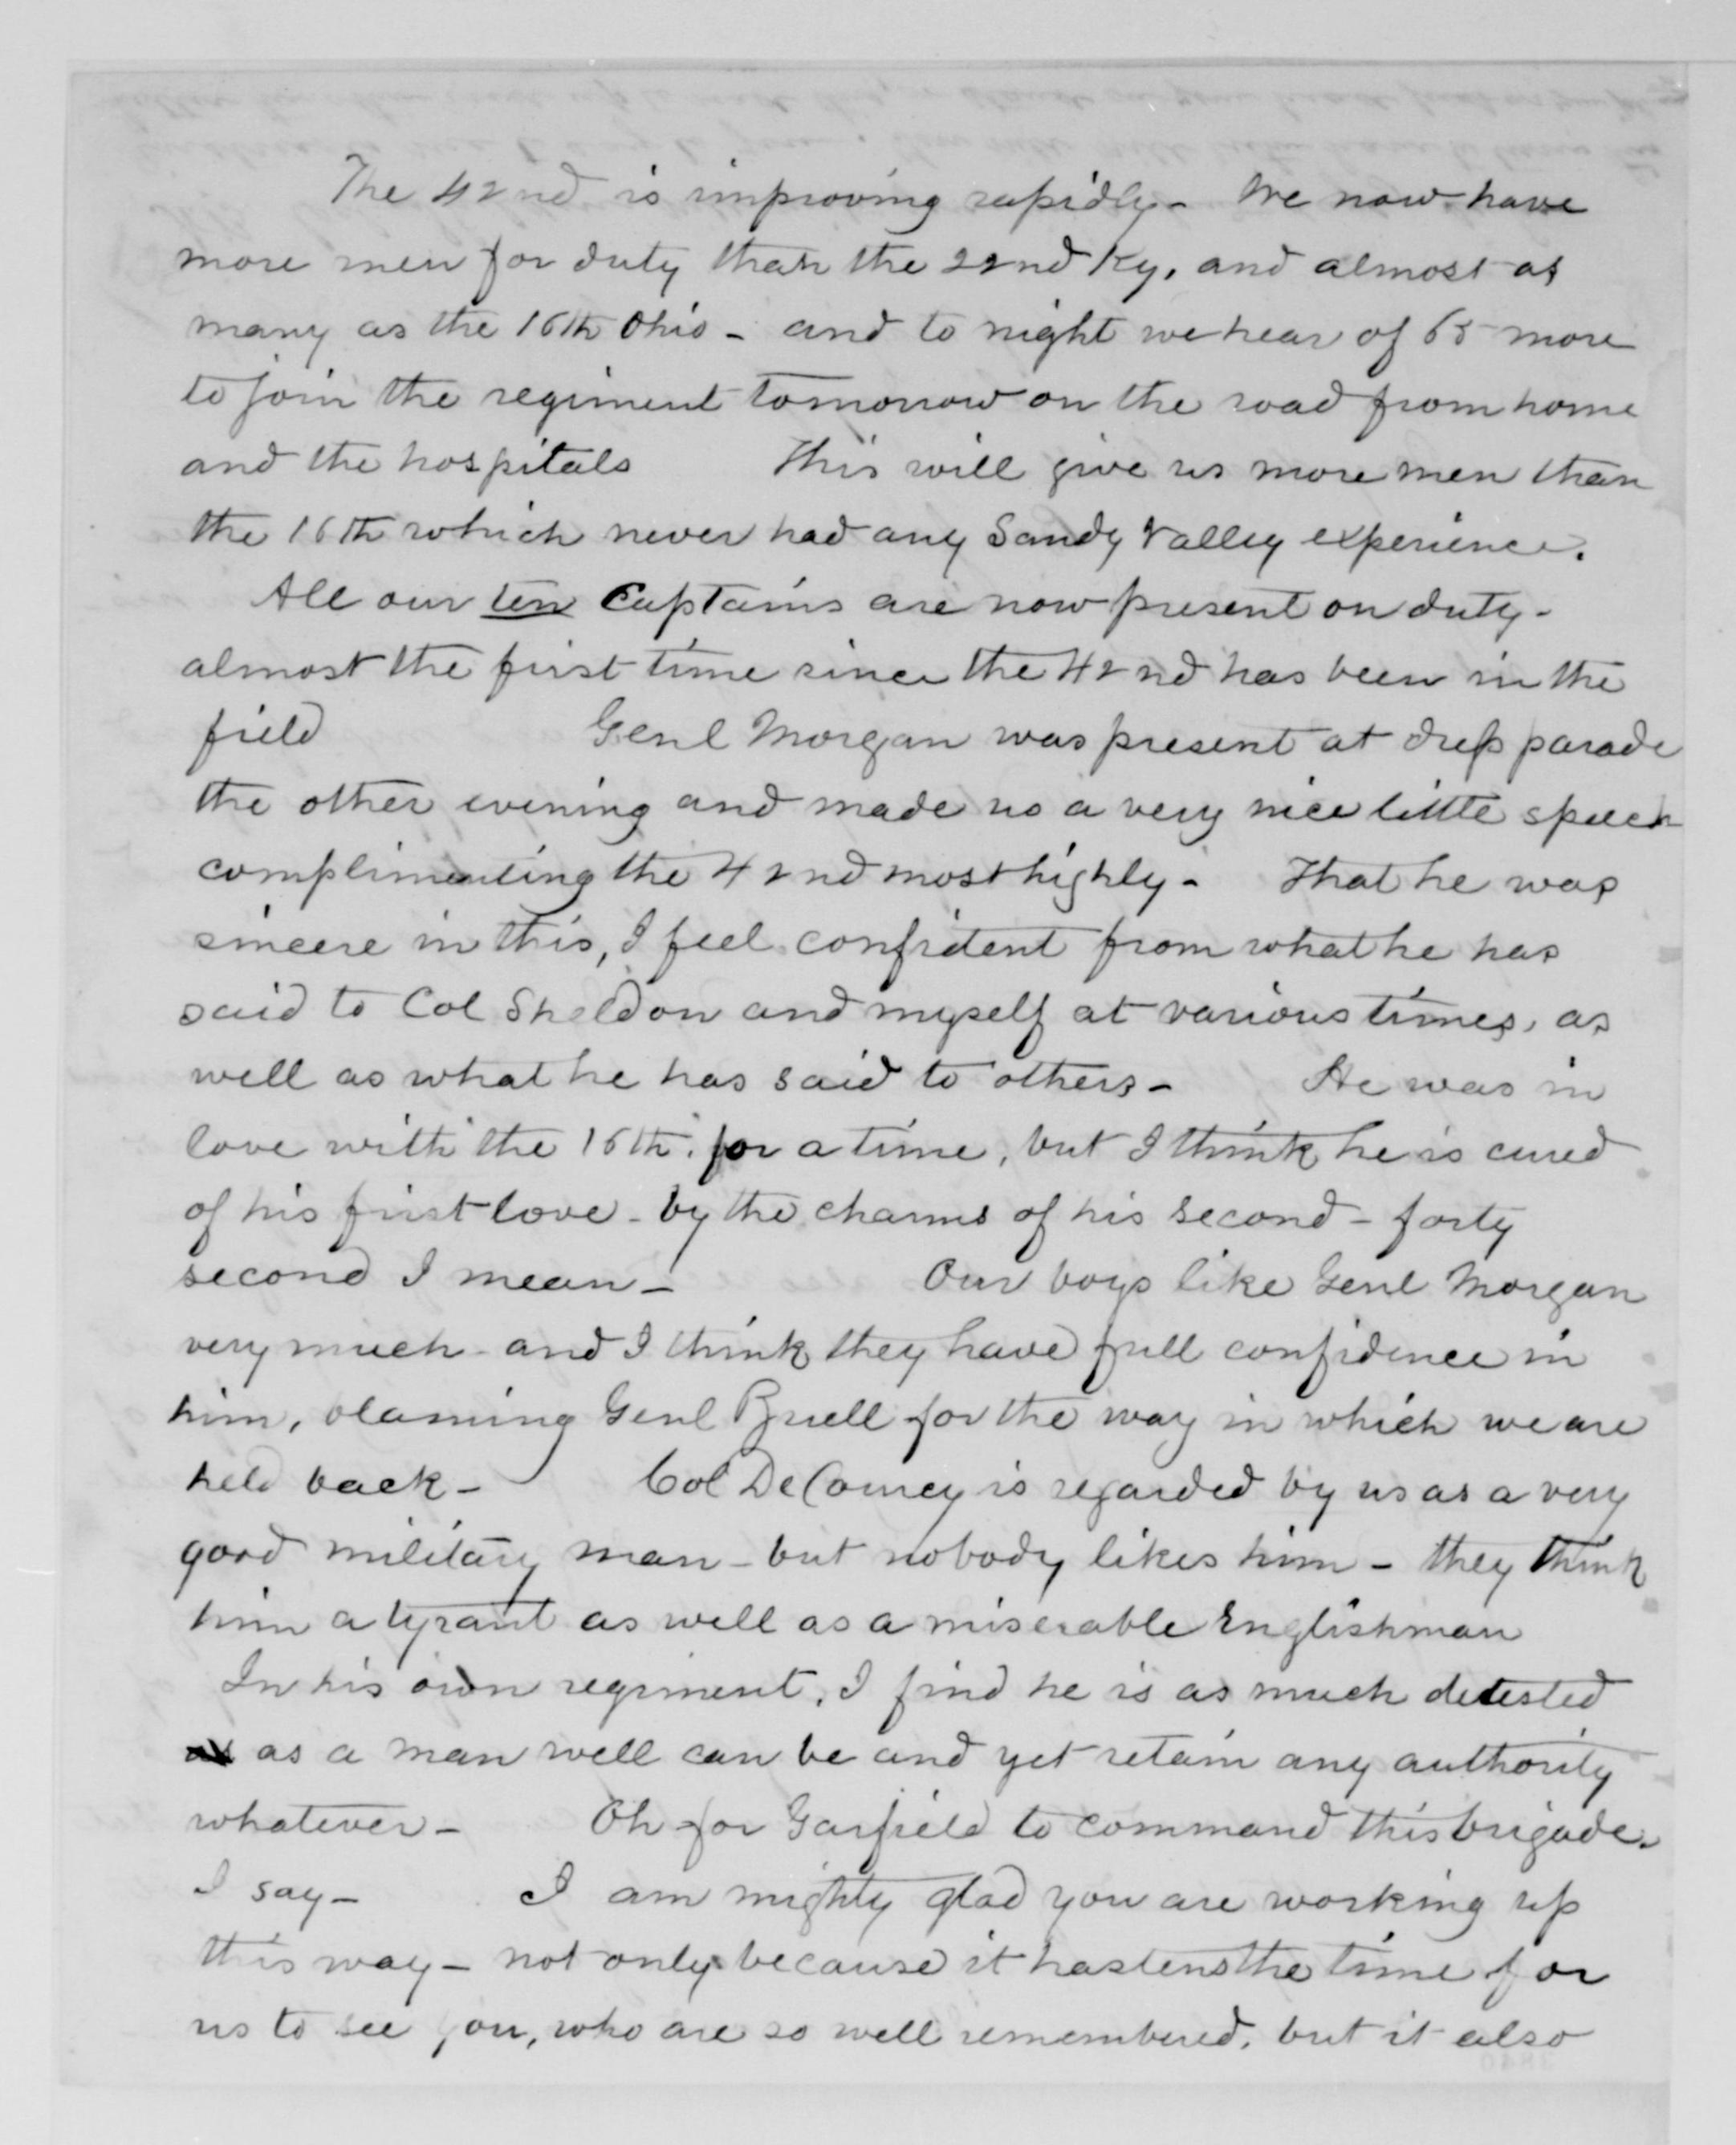 The 42nd is improving rapidly - We now have
more men for duty than the 22nd Ky. and almost as
many as the 16th Ohio - and to night we hear of 65 more
to join the regiment tomorrow on the road from home
and the hospitals This will give us more men than
the 16th which never had any Sandy Valley experience.
All our ten Captains are now present on duty -
almost the first time since the 42nd has been in the
field Genl Morgan was present at dress parade
the other evening and made us a very nice little speech
complimenting the 42nd most highly - That he was
sincere in this, I feel confident from what he has
said to Col Sheldon and myself at various times, as
well as what he has said to others - He was in
love with the 16th. for a time, but I think he is cured
of his first love - by the charms of his second - forty
second I mean - Our boys like Genl Morgan
very much - and I think they have full confidence in
him, blaming Genl Buell for the way in which we are
held back - Col DeCourcy is regarded by us as a very
good military man - but nobody likes him - they think
him a tyrant as well as a miserable Englishman
In his own regiment, I find he is as much detested
as as a man well can be and yet retain any authority
whatever - Oh for Garfield to command this brigade.
I say - I am mighty glad you are working up
this way - not only because it hastens the time for
us to see you, who are so well remembered, but it also